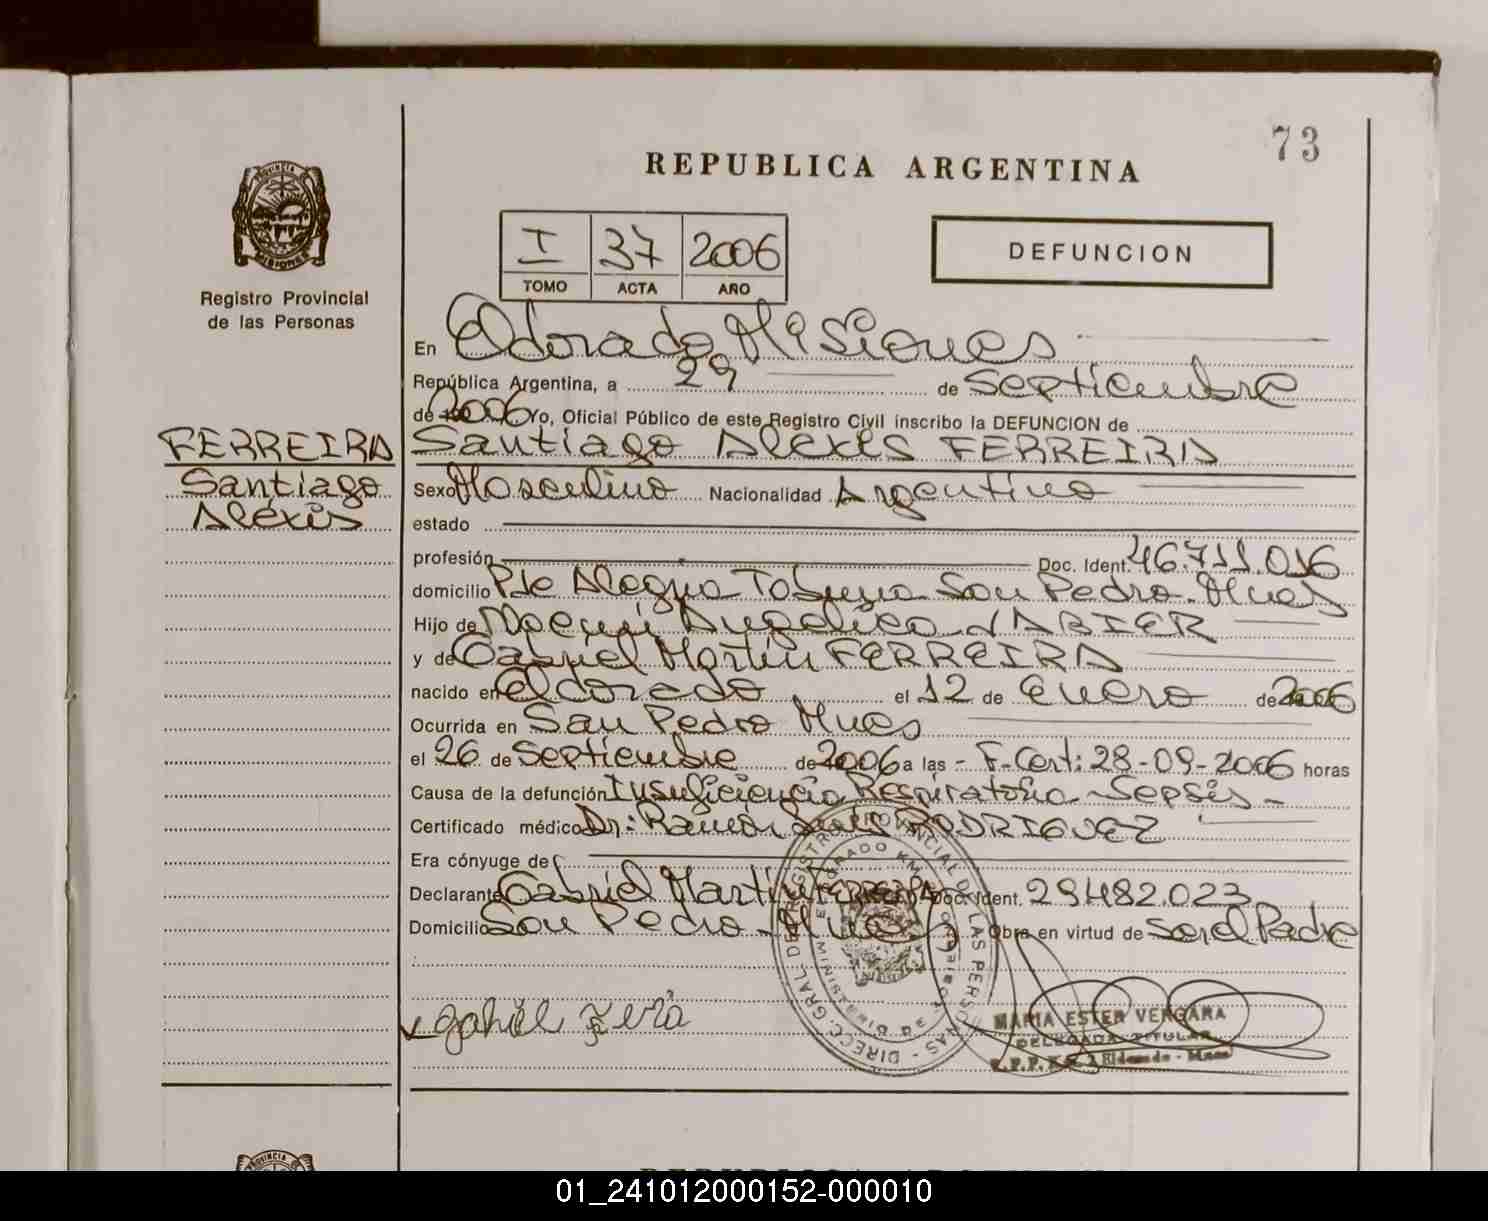 73
REPUBLICA ARGENTINA
PROVINCIA
MISIONES
Registro Provincial
de las Personas
I 37 2006
TOMO ACTA AÑO
DEFUNCION
En Eldorado Misiones
República Argentina, a 29 de Septiembre
de 2006 Yo, Oficial Público de este Registro Civil inscribo la DEFUNCION de
FERREIRA
Santiago
Alexis
Santiago Alexis FERREIRA
Sexo Masculino Nacionalidad Argentina
estado
profesión Doc. Ident. 46.711.016
domicilio Pje Alegria Tobuna San Pedro. Mnes
Hijo de Angelica
y de Gabriel Martin FERREIRA
nacido en Eldorado el 12 de Enero de 2006
Ocurrida en San Pedro Mnes
el 26 de Septiembre de 2006 a las - F. Cert: 28-09-2006 horas
Causa de la defunción Insuficiencia Respiratoria - Sepsis -
Certificado médico Dr: Ramón RODRIGUEZ
Era cónyuge de
Declarante Gabriel Martin FERREIRA Doc. Ident. 29.482.023
Domicilio San Pedro - Mnes Obra en virtud de Ser el Padre
MARIA ESTER VERGARA
DELEGADA TITULAR
Eldorado - Mnes
01_241012000152-000010